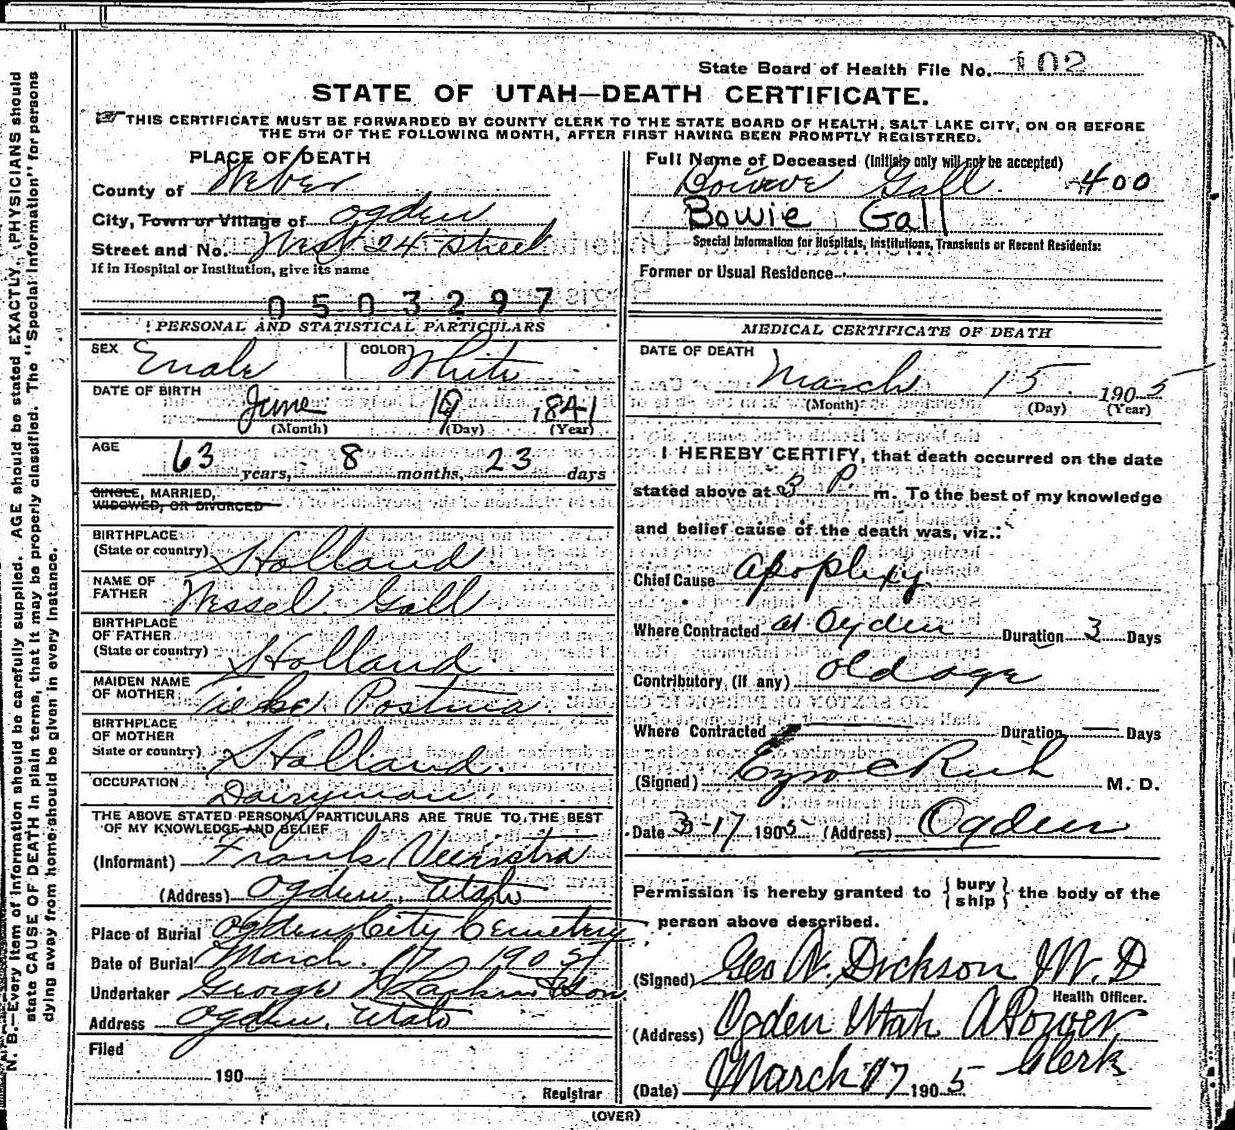 State Board of Health File No. 102
STATE OF UTAH—DEATH CERTIFICATE.
THIS CERTIFICATE MUST BE FORWARDED BY COUNTY CLERK TO THE STATE BOARD OF HEALTH, SALT LAKE CITY, ON OR BEFORE
THE 5TH OF THE FOLLOWING MONTH, AFTER FIRST HAVING BEEN PROMPTLY REGISTERED.
PLACE OF DEATH
County of Weber
City, Town or Village of Ogden
Street and No. West 24 Street
If in Hospital or Institution, give its name
0503297
PERSONAL AND STATISTICAL PARTICULARS
SEX Male COLOR White
DATE OF BIRTH June 19 1841
(Month) (Day) (Year)
AGE 63 years, 8 months, 23 days
SINGLE, MARRIED,
WIDOWED, OR DIVORCED
BIRTHPLACE
(State or country) Holland
NAME OF
FATHER Wessel Gall
BIRTHPLACE
OF FATHER
(State or country) Holland
MAIDEN NAME
OF MOTHER Postma
BIRTHPLACE
OF MOTHER
State or country) Holland
OCCUPATION Dairyman
THE ABOVE STATED PERSONAL PARTICULARS ARE TRUE TO THE BEST
OF MY KNOWLEDGE AND BELIEF
(Informant) Frank Veenstra
(Address) Ogden, Utah
Place of Burial Ogden City Cemetery
Date of Burial March 17 1905
Undertaker George W Larkin & Son
Address Ogden, Utah
Filed
190
Registrar
Full Name of Deceased (Initials only will not be accepted)
Gall 400
Bowie Gall
Special Information for Hospitals, Institutions, Transients or Recent Residents:
Former or Usual Residence
MEDICAL CERTIFICATE OF DEATH
DATE OF DEATH
March 15 1905
(Month) (Day) (Year)
I HEREBY CERTIFY, that death occurred on the date
stated above at 3 P. m. To the best of my knowledge
and belief cause of the death was, viz.:
Chief Cause apoplexy
Where Contracted at Ogden Duration 3 Days
Contributory (if any) old age
Where Contracted Duration — Days
(Signed) Ezra C Rich M. D.
Date 3-17 1905 (Address) Ogden
Permission is hereby granted to {bury ship} the body of the
person above described.
(Signed) Geo A. Dickson M. D
Health Officer.
(Address) Ogden Utah A Power
Clerk
(Date) March 17 1905
(OVER)
N. B.—Every item of information should be carefully supplied. AGE should be stated EXACTLY. PHYSICIANS should
state CAUSE OF DEATH in plain terms, that it may be properly classified. The "Special Information" for persons
dying away from home should be given in every instance.